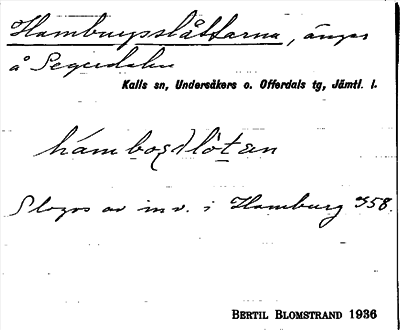 Hamburgsslåttarna, ängar
å Segerdalen
Kalls sn, Undersåkers o. Offerdals tg, Jämtl. l.
Slogos av inv. i Hamburg 358.
BERTIL BLOMSTRAND 1936